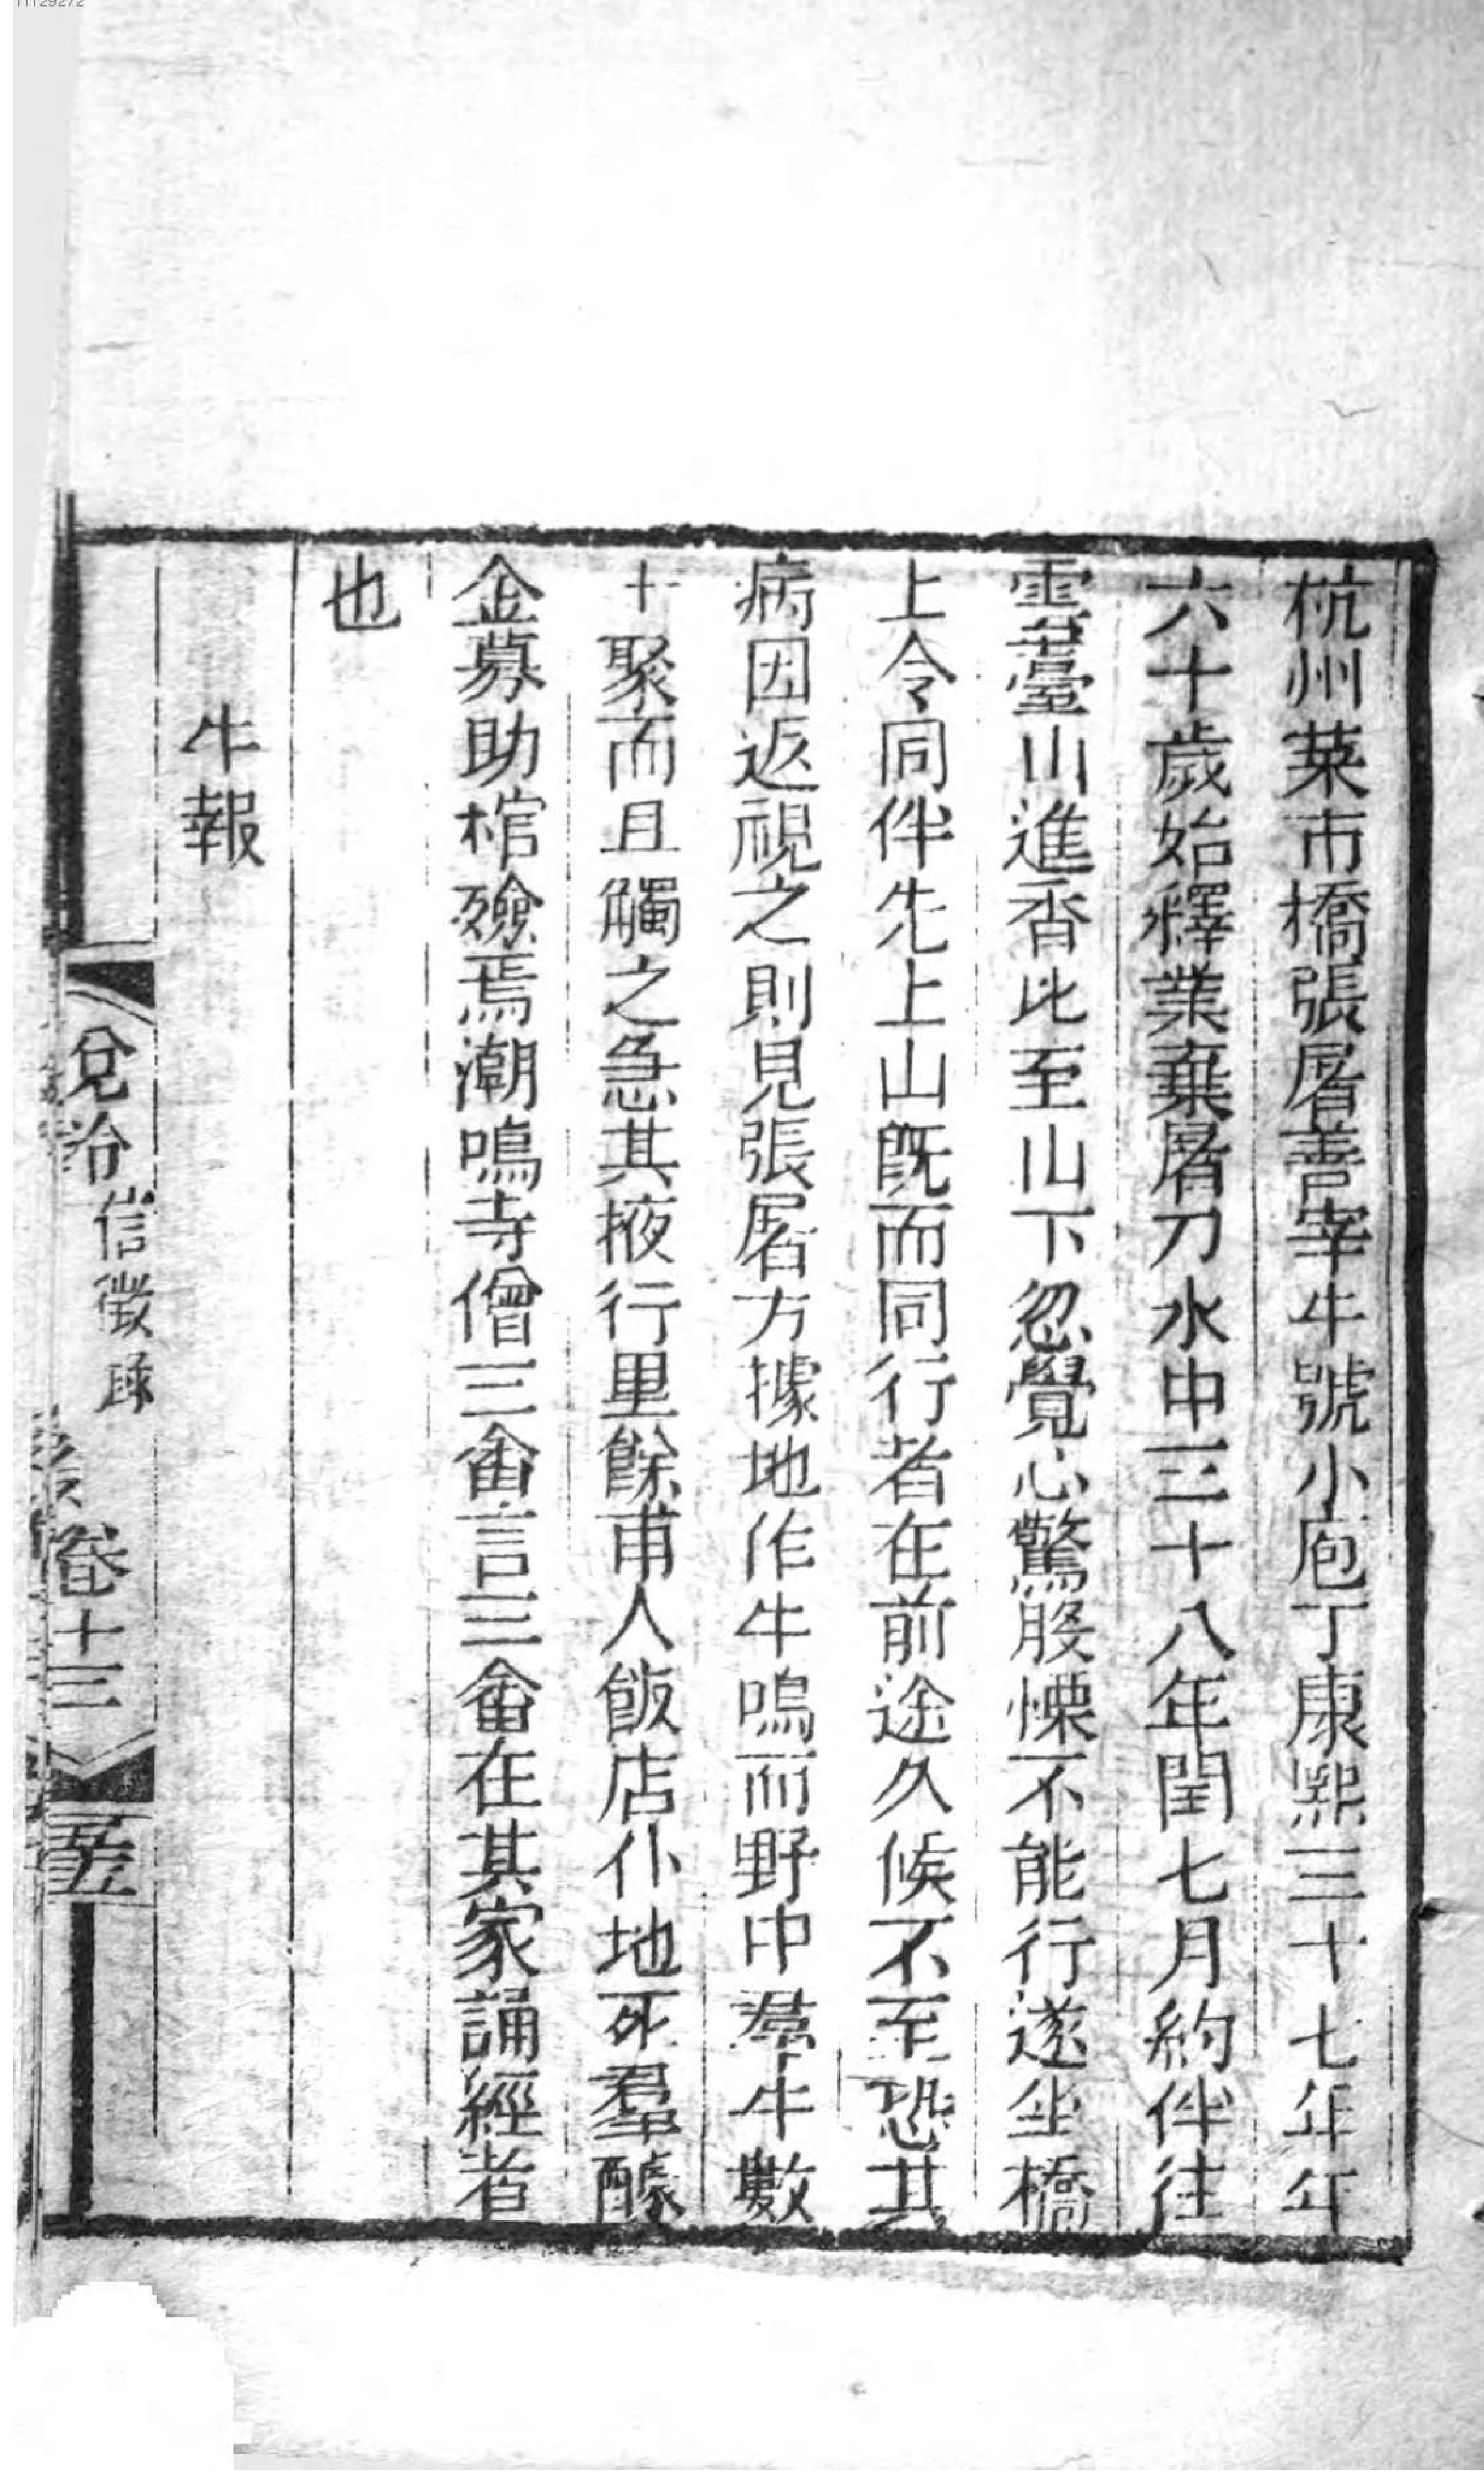 11129272
杭州菜市橋張屠善宰牛號小庖丁康熙三十七年年
六十歲始釋業棄屠刀水中三十八年閏七月約伴往
雲臺山進香比至山下忽覺心驚股慄不能行遂坐橋
上令同伴先上山既而同行者在前途久候不至恐其
病因返視之則見張屠方據地作牛鳴而野中羣牛數
十聚而且觸之急其掖行里餘甫入飯店仆地死羣醵
金募助棺殮焉潮鳴寺僧三畬言三畬在其家誦經者
也
牛報
說鈴
信徵錄
卷十三